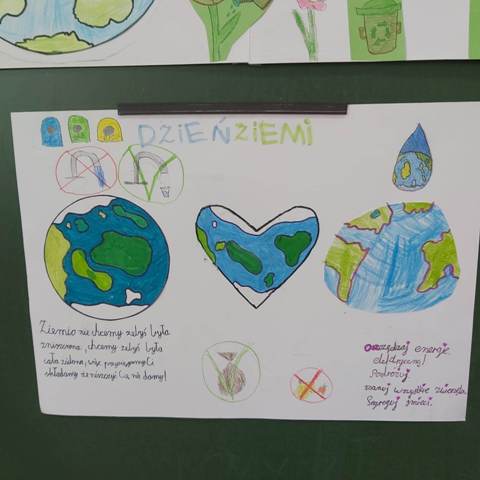 DZIEŃ ZIEMI
Ziemio nie chcemy żebyś była
zniszczona, chcemy żebyś była
cała zielona, więc przyrzeczenie Ci
składamy że niszczyć Cię nie damy!
oszczędzaj energię
elektryczną!
Podróżuj
szanuj wszystkie zwierzęta.
Segreguj śmieci.